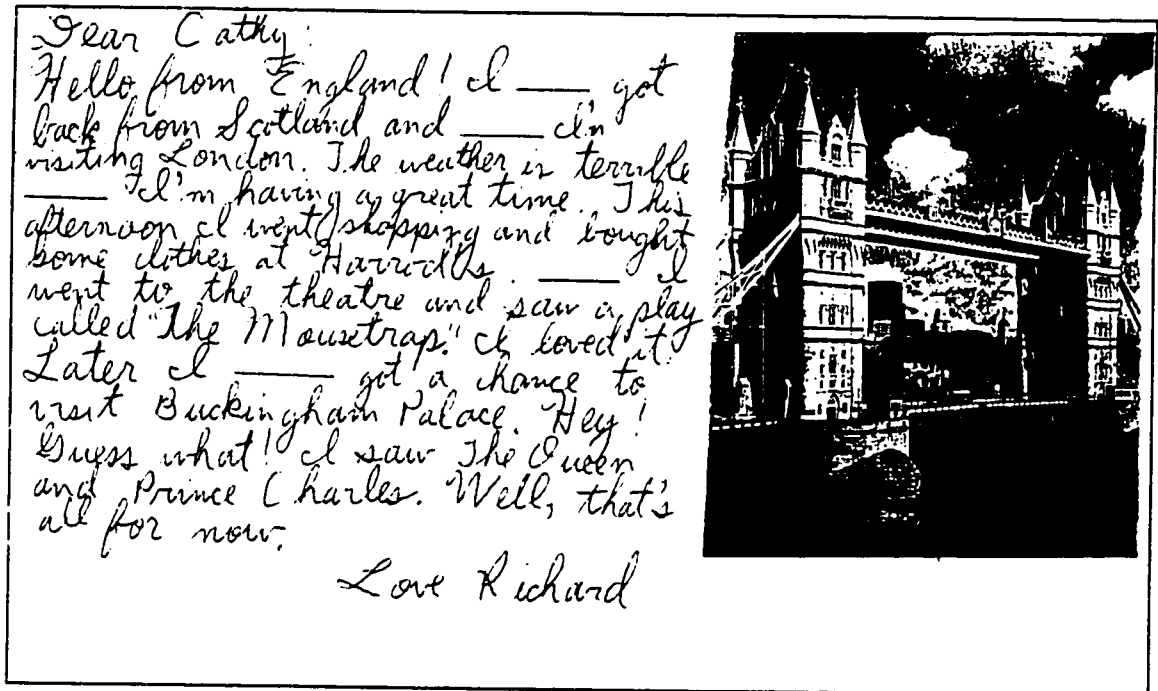 Dear Cathy:
Hello from England! I ____ got
back from Scotland and ____ I'm
visiting London. The weather is terrible
____ I'm having a great time. This
afternoon I went shopping and bought
some clothes at Harrod's. ____ I
went to the theatre and saw a play
called "The Mousetrap." I loved it
Later I ____ got a chance to
visit Buckingham Palace. Hey!
Guess what! I saw The Queen
and Prince Charles. Well, that's
all for now.
Love Richard